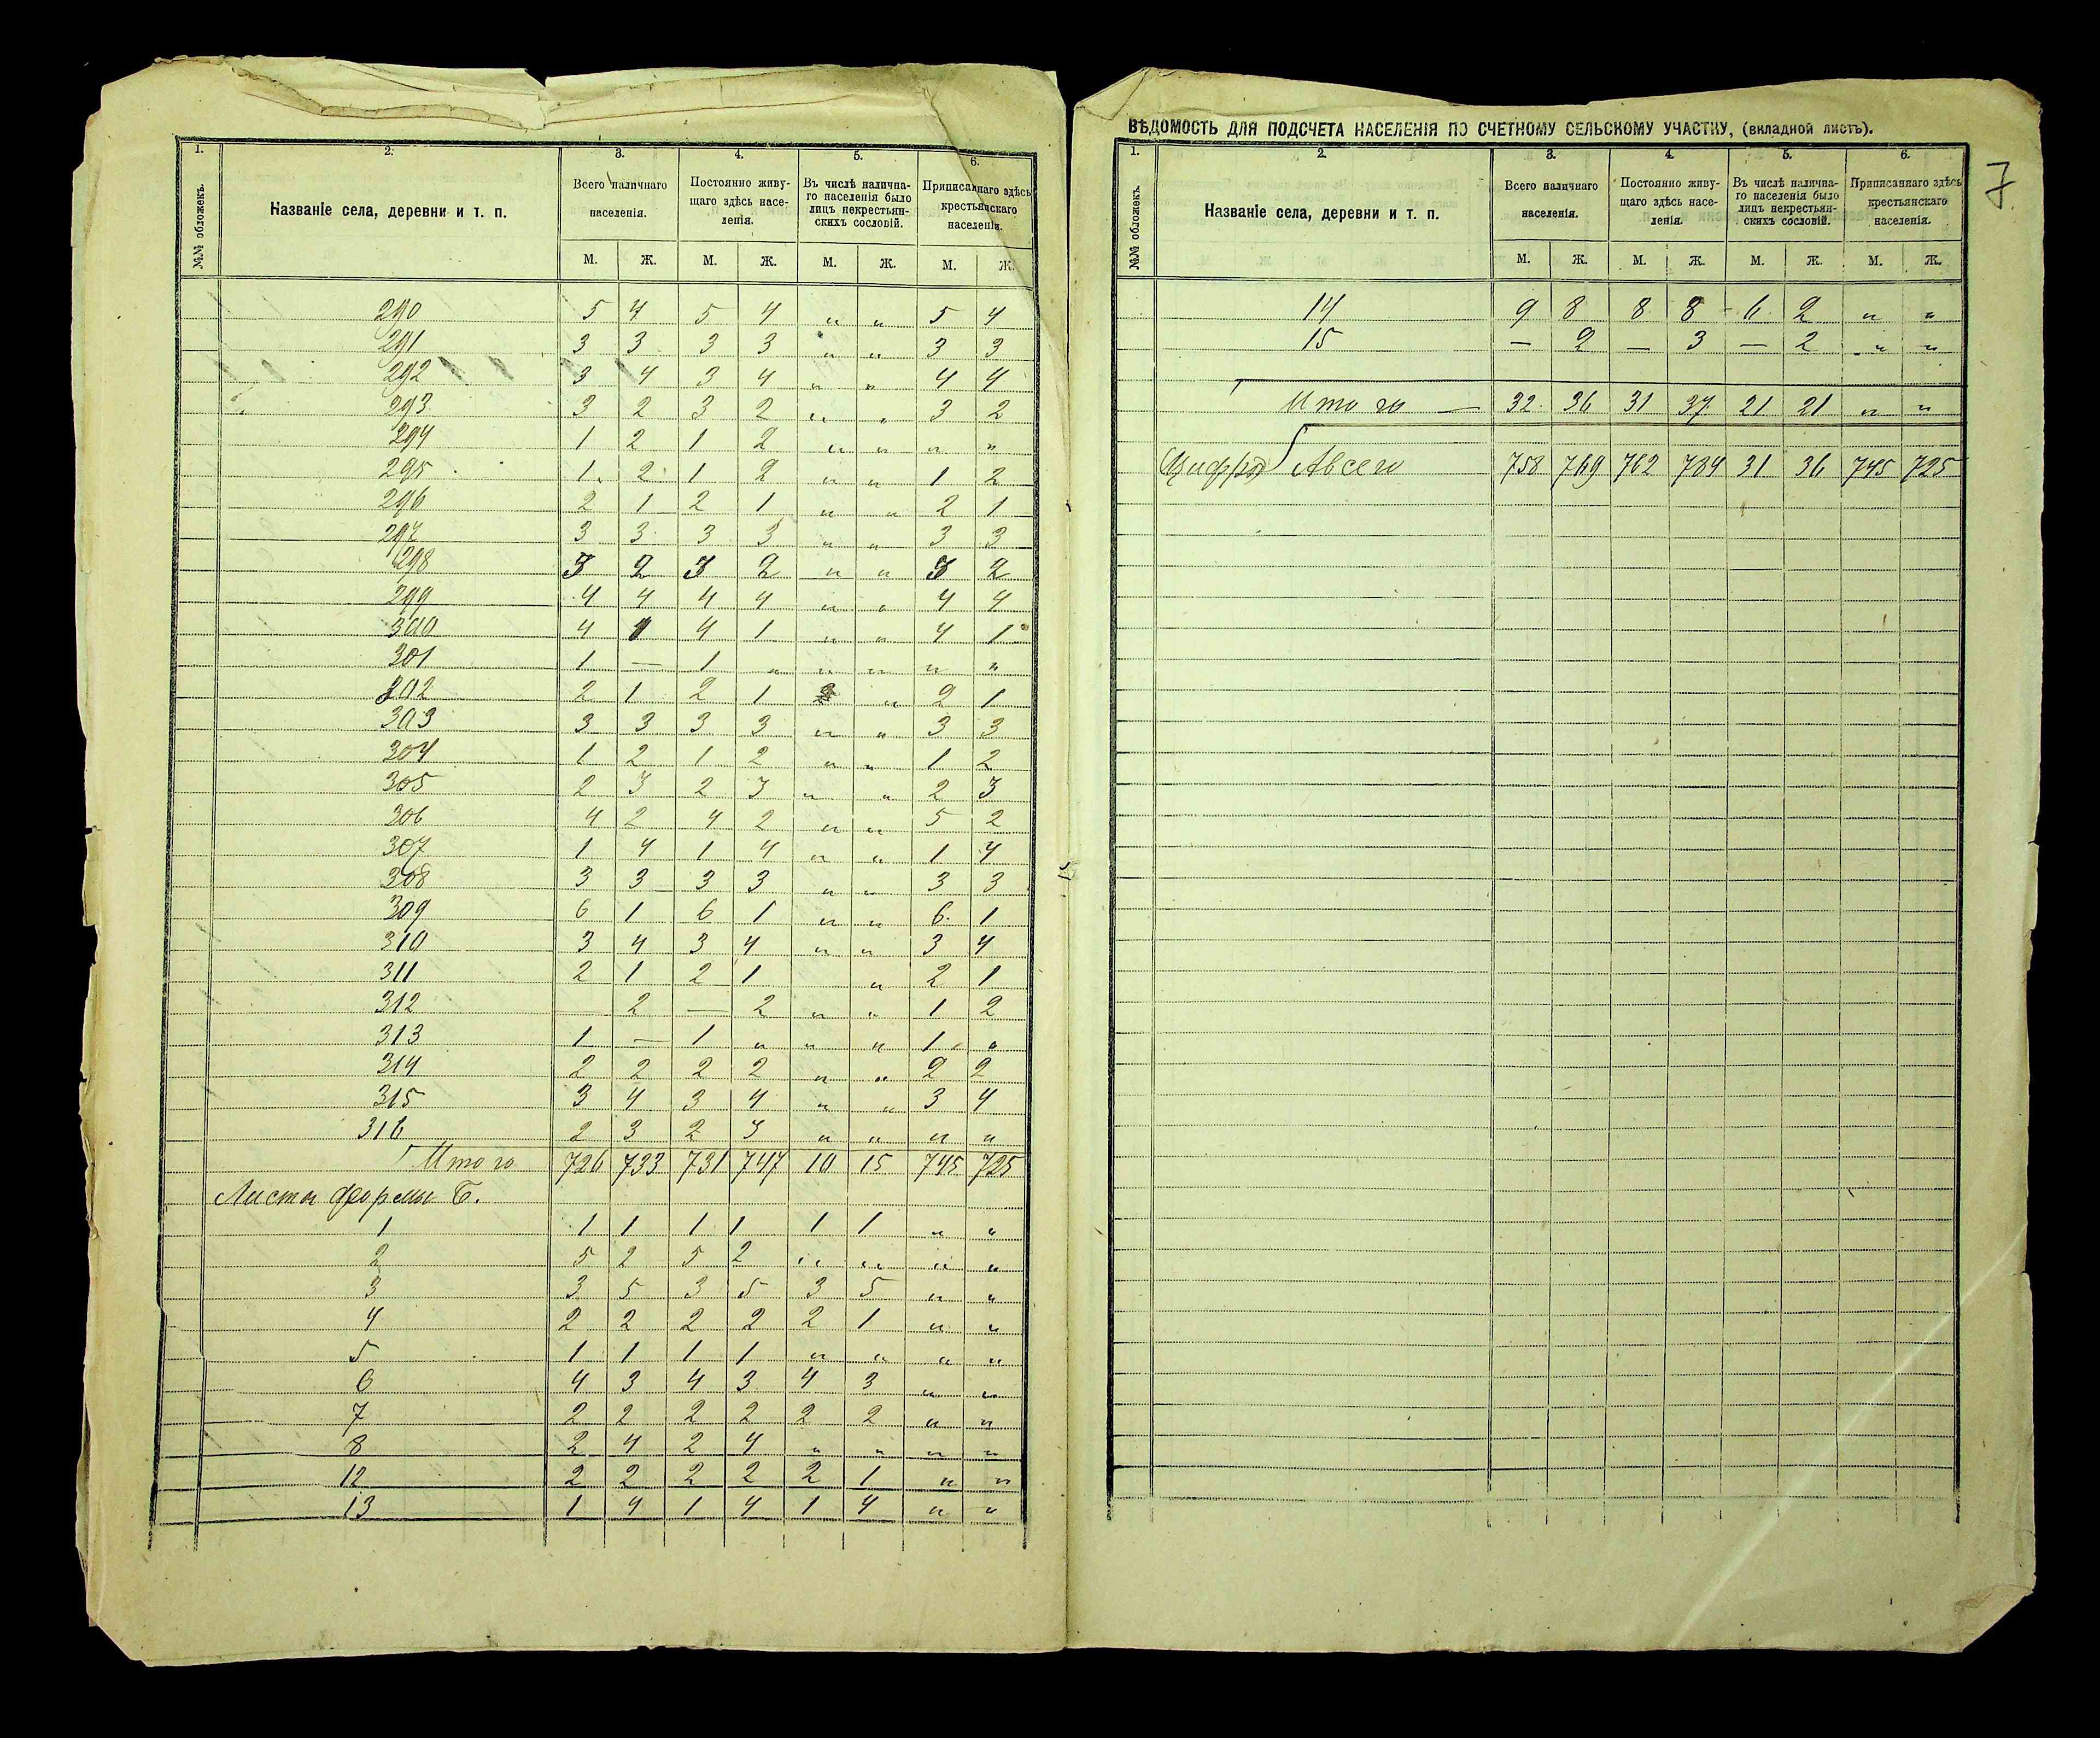 1. 2. 3. 4. 5. 6.
№№ обложекъ. Названіе села, деревни и т. п. Всего наличнаго населенія. Постоянно живущаго здѣсь населенія. Въ числѣ наличнаго населенія было лицъ некрестьянскихъ сословій. Приписаннаго здѣсь крестьянскаго населенія.
М. Ж. М. Ж. М. Ж. М. Ж.
290 5 4 5 4 „ „ 5 4
291 3 3 3 3 „ „ 3 3
292 3 4 3 4 „ „ 4 4
293 3 2 3 2 „ „ 3 2
294 1 2 1 2 „ „ „ „
295 1 2 1 2 „ „ 1 2
296 2 1 2 1 „ „ 2 1
297 3 3 3 3 „ „ 3 3
298 3 2 3 2 „ „ 3 2
299 4 4 4 4 „ „ 4 4
300 4 1 4 1 „ „ 4 1
301 1 — 1 „ „ „ „ „
302 2 1 2 1 „ 2 1
303 3 3 3 3 „ „ 3 3
304 1 2 1 2 „ „ 1 2
305 2 3 2 3 „ „ 2 3
306 4 2 4 2 „ „ 5 2
307 1 4 1 4 „ „ 1 4
308 3 3 3 3 „ „ 3 3
309 6 1 6 1 „ „ 6 1
310 3 4 3 4 „ „ 3 4
311 2 1 2 1 „ 2 1
312 — 2 — 2 „ „ 1 2
313 1 — 1 „ „ „ 1 „
314 2 2 2 2 „ „ 2 2
315 3 4 3 4 „ „ 3 4
316 2 3 2 3 „ „ „ „
Итого 726 733 731 747 10 15 745 725
Листы формы Б.
1 1 1 1 1 1 1 „ „
2 5 2 5 2 „ „ „ „
3 3 5 3 5 3 5 „ „
4 2 2 2 2 2 1 „ „
5 1 1 1 1 „ „ „ „
6 4 3 4 3 4 3 „ „
7 2 2 2 2 2 2 „ „
8 2 4 2 4 „ „ „ „
12 2 2 2 2 2 1 „ „
13 1 4 1 4 1 4 „ „
ВѢДОМОСТЬ ДЛЯ ПОДСЧЕТА НАСЕЛЕНІЯ ПО СЧЕТНОМУ СЕЛЬСКОМУ УЧАСТКУ, (вкладной листъ).
7
1. 2. 3. 4. 5. 6.
№№ обложекъ. Названіе села, деревни и т. п. Всего наличнаго населенія. Постоянно живущаго здѣсь населенія. Въ числѣ наличнаго населенія было лицъ некрестьянскихъ сословій. Приписаннаго здѣсь крестьянскаго населенія.
М. Ж. М. Ж. М. Ж. М. Ж.
14 9 8 8 8 6 2 „ „
15 — 2 — 3 — 2 „ „
Итого — 32 36 31 37 21 21 „ „
758 769 762 784 31 36 745 725